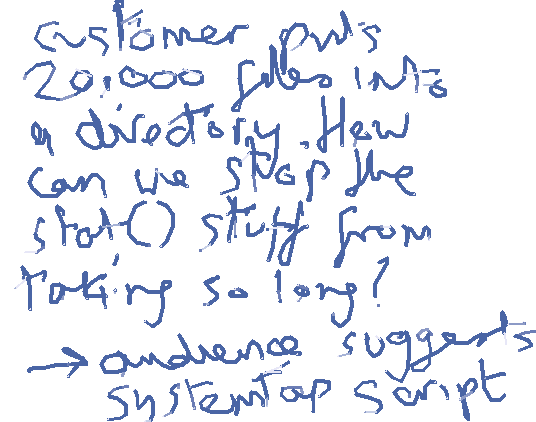 customer puts
20,000 files into
a directory. How
can we stop the
stat() stuff from
taking so long?
→ audience suggests
systemtap script